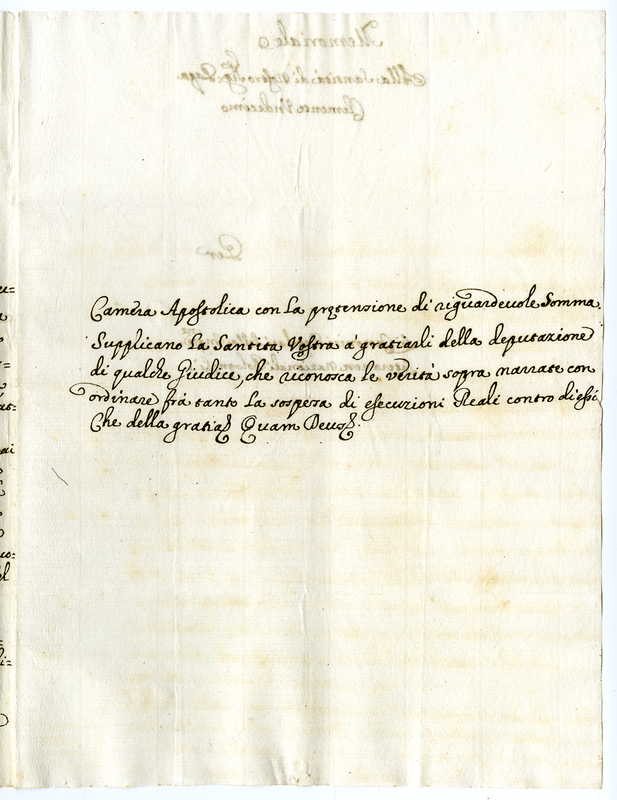 Memoriale
Alla Santità di
Clemente Undecimo
Per
Camera Apostolica con La pretensione di riguardeuole Somma.
Supplicano La Santita Vostra a' gratiarli della deputazione
di qualche Giudice, che riconosca le verità sopra narrate con
ordinare frà tanto La sospesa di esecuzioni Reali contro di essi
Che della gratia Quam Deus